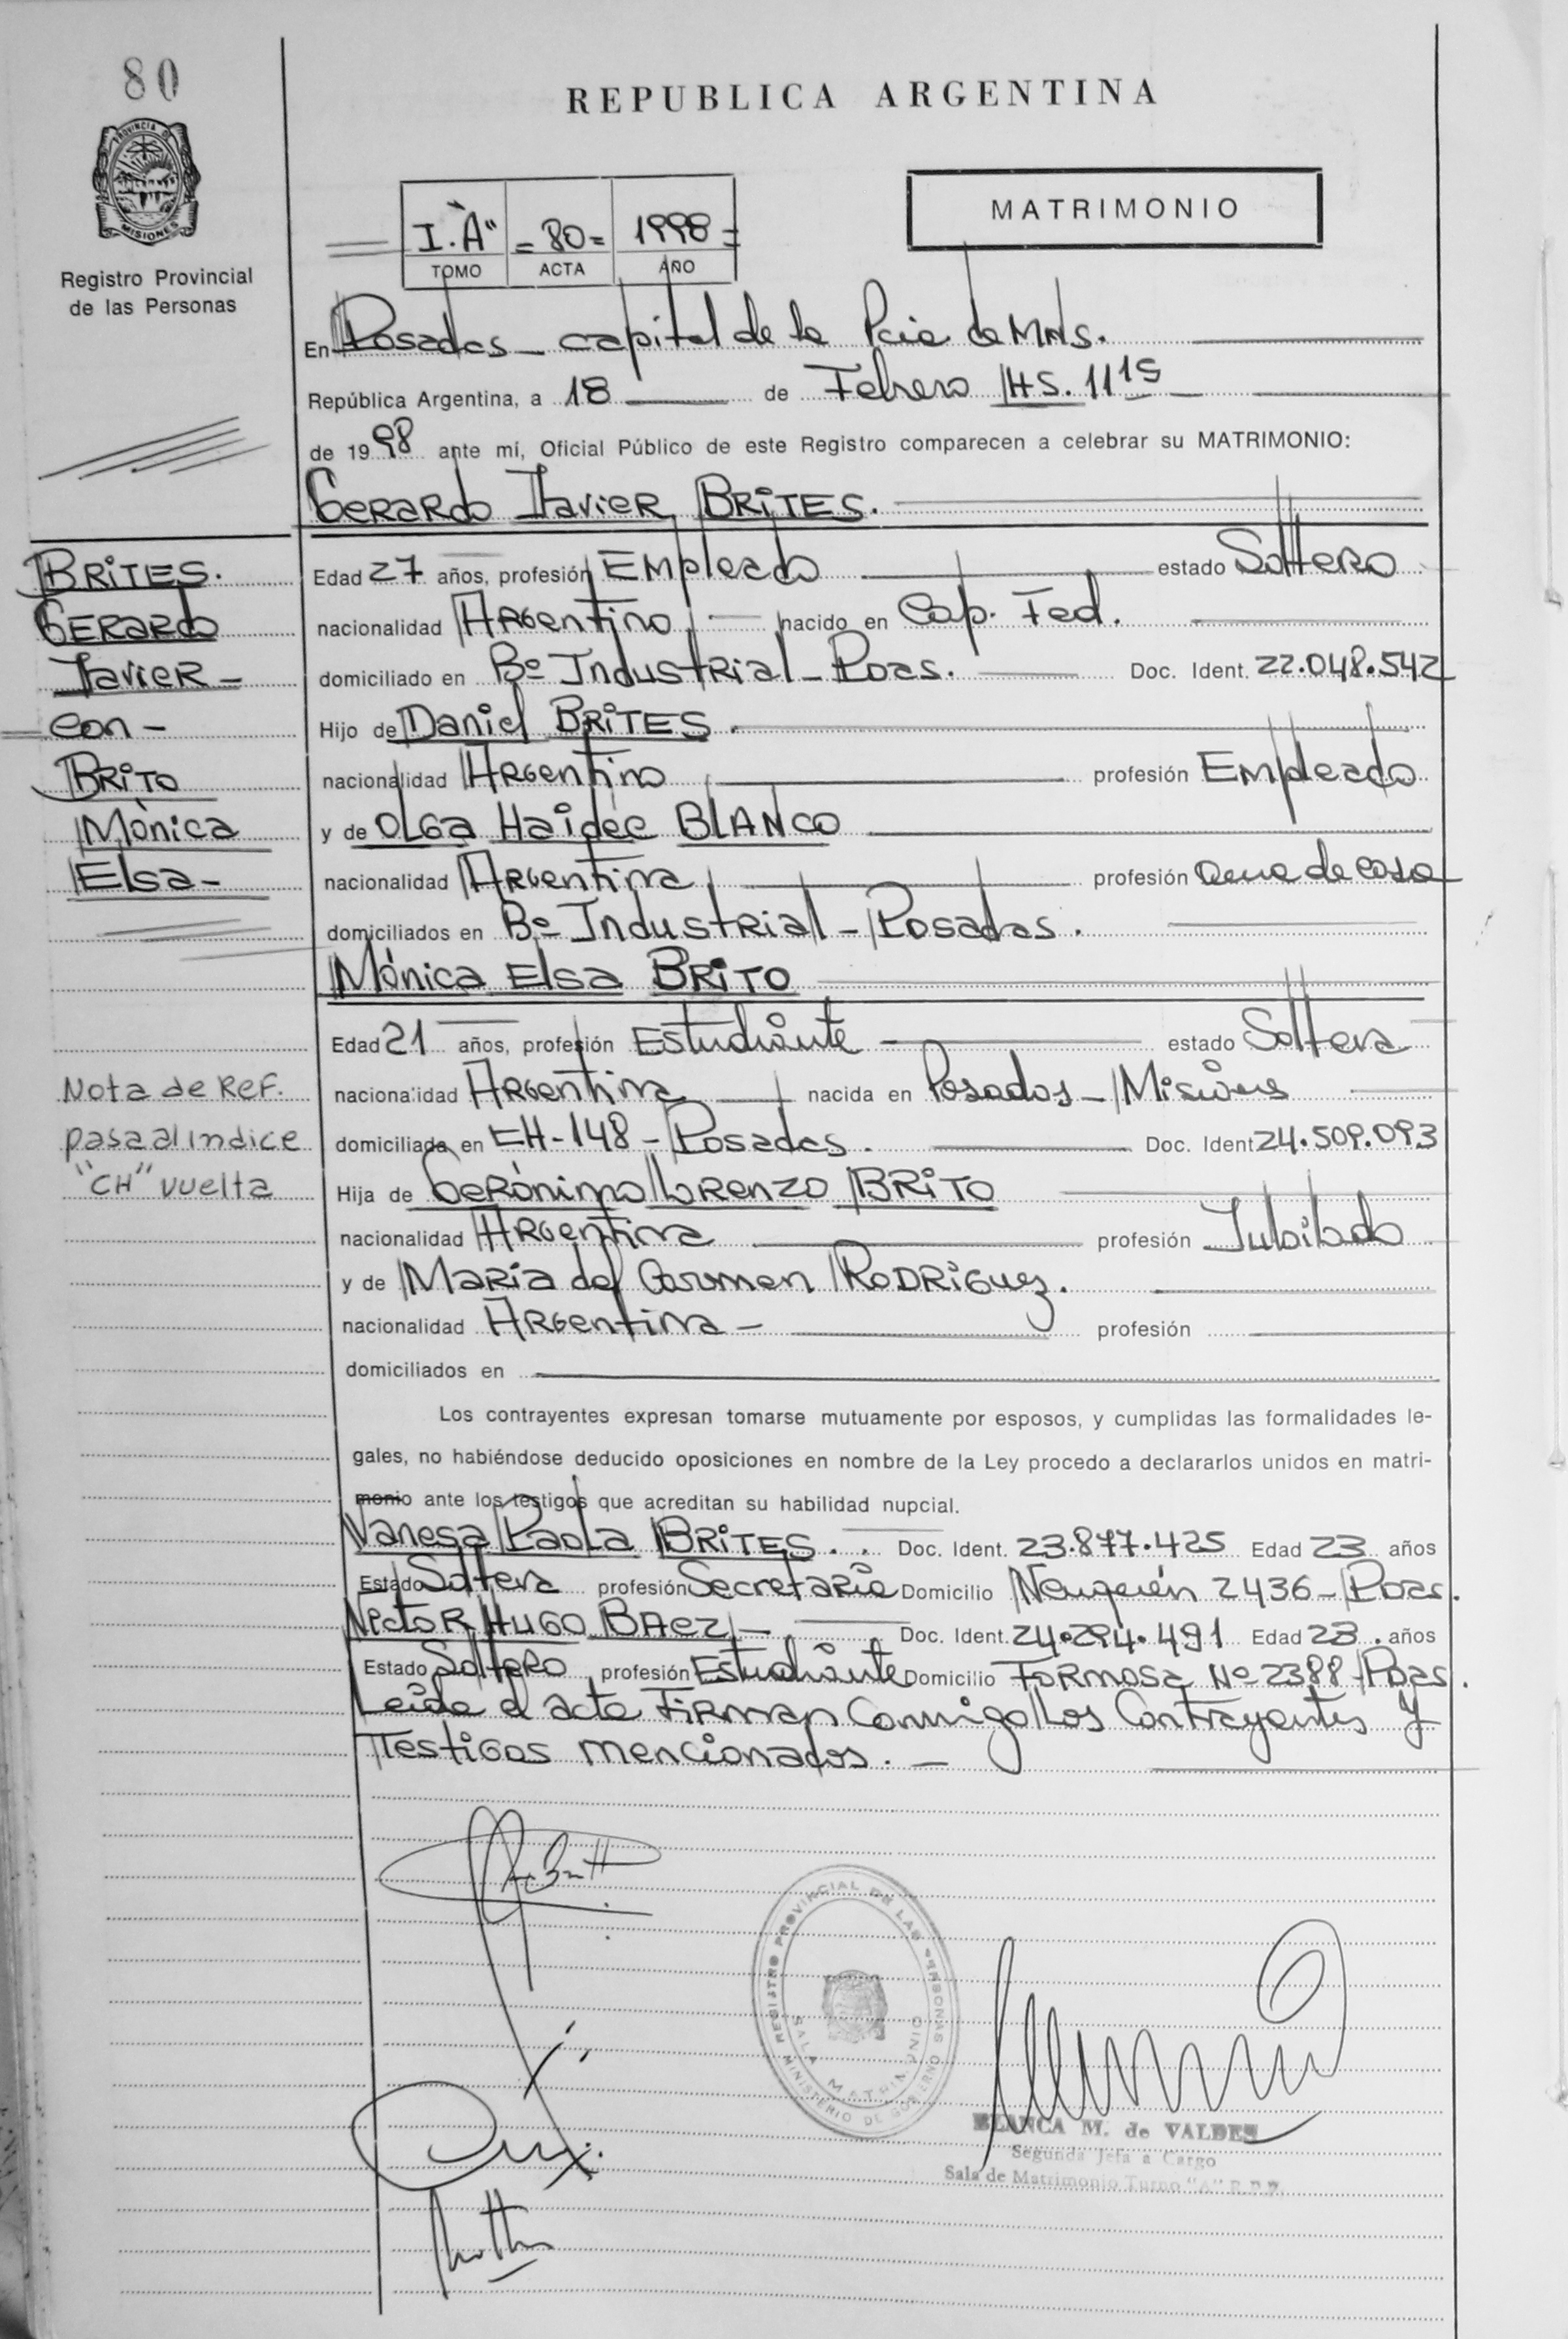 80
REPUBLICA ARGENTINA
PROVINCIA DE
MISIONES
Registro Provincial
de las Personas
I."A" =80= 1998=
TOMO ACTA AÑO
MATRIMONIO
En Posadas - capital de la Pcia de MNS.
República Argentina, a 18 de Febrero HS. 11 15
de 1998 ante mí, Oficial Público de este Registro comparecen a celebrar su MATRIMONIO:
Gerardo Javier BRITES.
BRITES.
GERARdo
Javier -
con -
BRITO
Mònica
Elsa -
Edad 27 años, profesión Empleado estado Soltero
nacionalidad Argentino nacido en Cap. Fed.
domiciliado en Bº Industrial - Pdas. Doc. Ident. 22.048.542
Hijo de Daniel BRITES.
nacionalidad Argentino profesión Empleado
y de OLGA Haidee BLANCO
nacionalidad Argentina profesión ama de casa
domiciliados en Bº Industrial - Posadas.
Mónica Elsa BRITO
Edad 21 años, profesión Estudiante estado Soltera
nacionalidad Argentina nacida en Posadas - Misiones
domiciliada en EH-148 - Posadas. Doc. Ident 24.509.093
Hija de Gerónimo Lorenzo BRITO
nacionalidad Argentina profesión Jubilado
y de Maria del Carmen RODRIGUEZ.
nacionalidad Argentina - profesión
domiciliados en
Nota de Ref.
pasa al indice
"CH" vuelta
Los contrayentes expresan tomarse mutuamente por esposos, y cumplidas las formalidades le-
gales, no habiéndose deducido oposiciones en nombre de la Ley procedo a declararlos unidos en matri-
monio ante los testigos que acreditan su habilidad nupcial.
Vanesa Paola BRITES. Doc. Ident. 23.877.425 Edad 23 años
Estado Soltera profesión Secretaria Domicilio Neuquén 2436 - Pdas.
Nector HUGO BAEZ - Doc. Ident. 24.294.491 Edad 23. años
Estado Soltero profesión Estudiante Domicilio Formosa Nº 2388 Pdas.
Leida el acta Firman Conmigo Los Contrayentes y
Testigos mencionados. -
REGISTRO PROVINCIAL DE LAS PERSONAS
SALA MATRIMONIO
MINISTERIO DE GOBIERNO
BLANCA M. de VALDES
Segunda Jefa a Cargo
Sala de Matrimonio Turno "A" R.P.P.